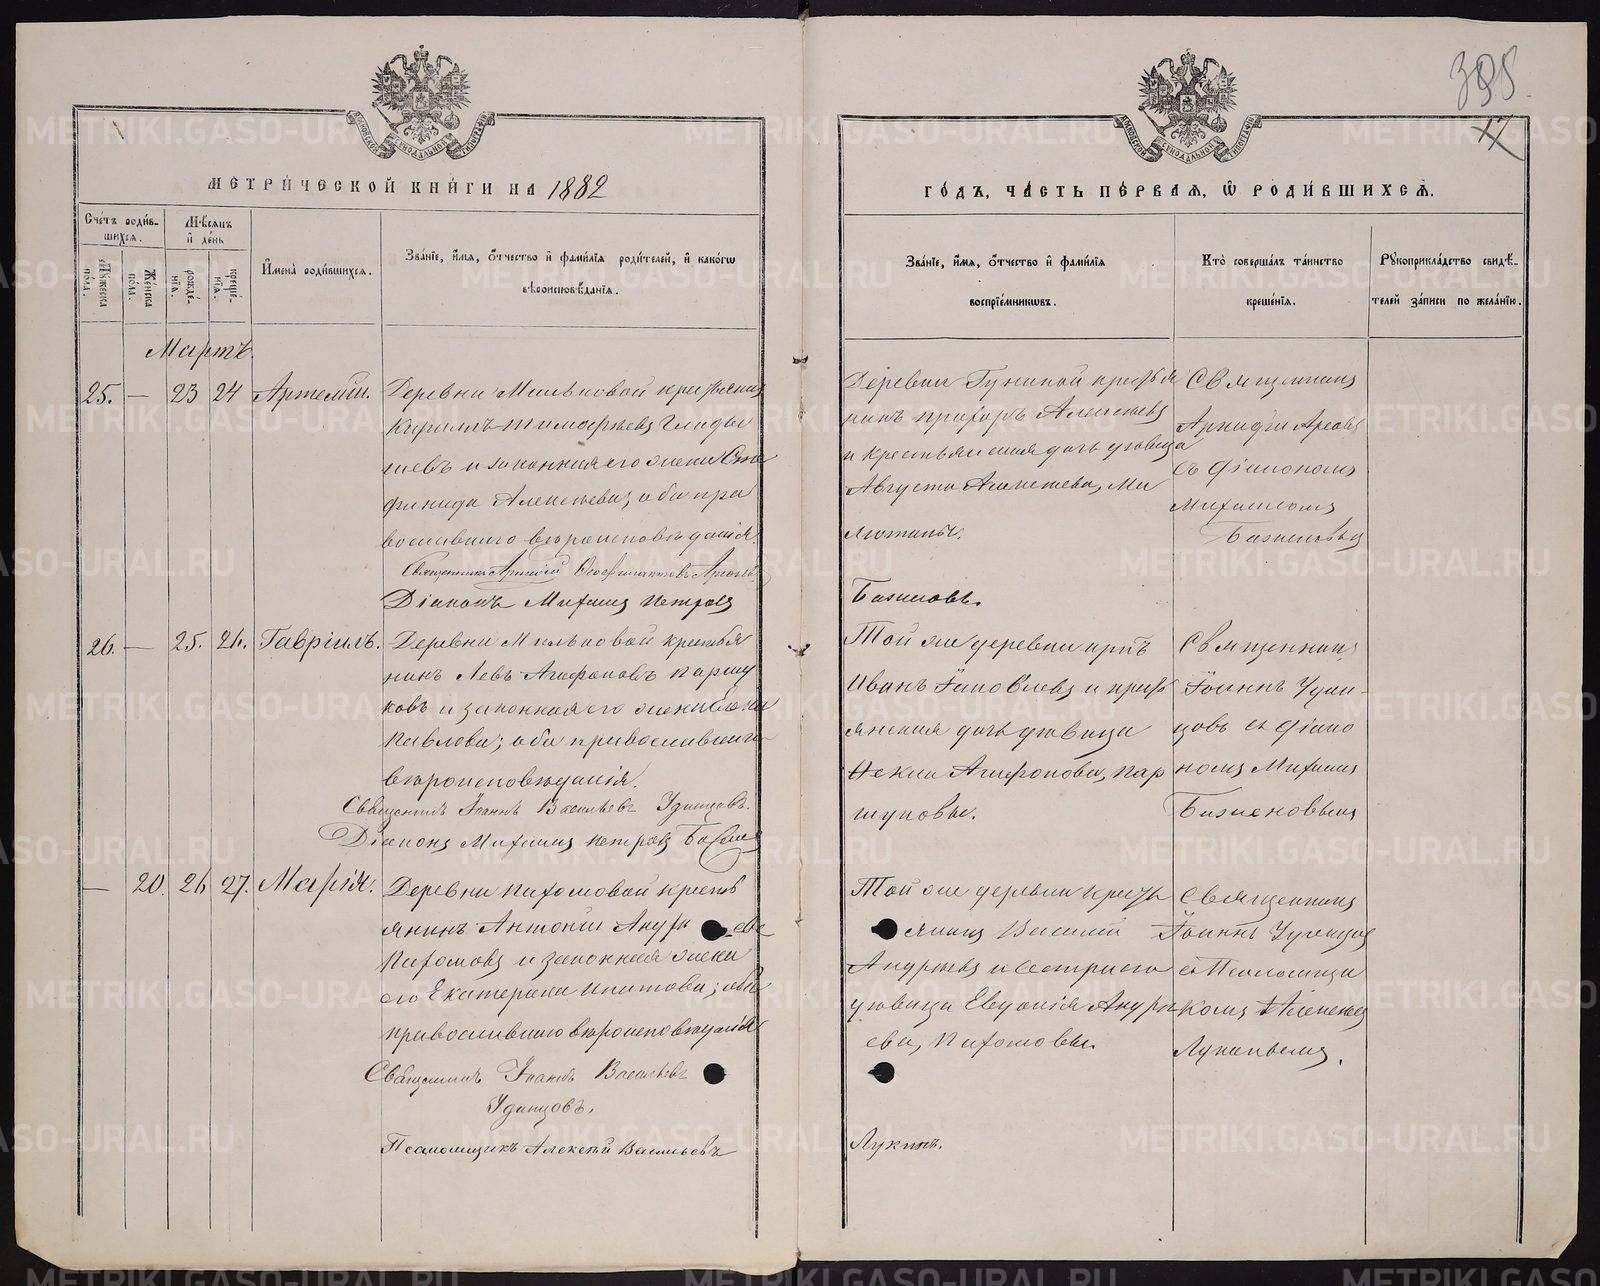 398
17
МЕТРИ́ЧЕСКОЙ КНИ́ГИ НА 1882
ГО́ДЪ, ЧА́СТЬ ПЕ́РВАЯ, Ѽ РОДИ́ВШИХСЯ.
Сче́тъ роди́в-
шихся.
Мѣ́сяцъ
и де́нь
Му́жеска по́ла.
Же́нска по́ла.
рожде́-
нія.
креще́-
нія.
И҆мена̀ роди́вшихся.
Зва́нїе, и҆́мя, ѻ҆́тчество и҆ фами́лїя роди́телей, и҆ како́гѡ
вѣроисповѣ́данїя.
Зва́нїе, и҆́мя, ѻ҆́тчество и҆ фами́лїя
воспрїе́мникѡвъ.
Кто̀ соверша́лъ та́инство
креще́нїя.
Рꙋкоприкла́дство свидѣ́-
телей за́писи по жела́нїю.
Мартъ.
25. — 23 24 Артемій.
Деревни Мильковой крестьянинъ
Кириллъ Тимофѣевъ Глады
шевъ и законная его жена Сте
фанида Алексѣева; оба пра
вославнаго вѣроисповѣданія.
Священникъ Аркадій Ѳеофилактовъ
Діаконъ Михаилъ Петровъ
Деревни крестья
нинъ Алексѣевъ
и крестьянская дочь дѣвица
Августа Алексѣева, Ми
Баженовъ.
Священникъ
Аркадій
съ Діакономъ
Михаиломъ
Баженовымъ
26. — 25. 26. Гавріилъ.
Деревни Мильковой крестья
нинъ Левъ Агафоновъ Паршу
ковъ и законная его жена
Павлова; оба православнаго
вѣроисповѣданія.
Священникъ Іоаннъ Васильевъ Удинцовъ.
Діаконъ Михаилъ Петровъ
Той же деревни
Иванъ Яковлевъ и кресть
янская дочь дѣвица
Агафонова, Пар
шуковы.
Священникъ
Іоаннъ Удин-
цовъ съ Діако
номъ Михаиломъ
Баженовымъ
— 20. 26 27. Марія.
Деревни Пахомовой кресть
янинъ Антоній Андре евъ
Пахомовъ и законная жена
его Екатерина Ипатова; оба
православнаго вѣроисповѣданія
Священникъ Іоаннъ Васильевъ
Удинцовъ.
Псаломщикъ Алексѣй Васильевъ
Той же деревни кресть
янинъ Василій
Андреевъ и сестра его
дѣвица Евдокія Андре
ева, Пахомовы.
Лукинъ.
Священникъ
Іоаннъ Удинцовъ
съ Псаломщи
комъ Алексѣемъ
Лукинымъ.
METRIKI.GASO-URAL.RU